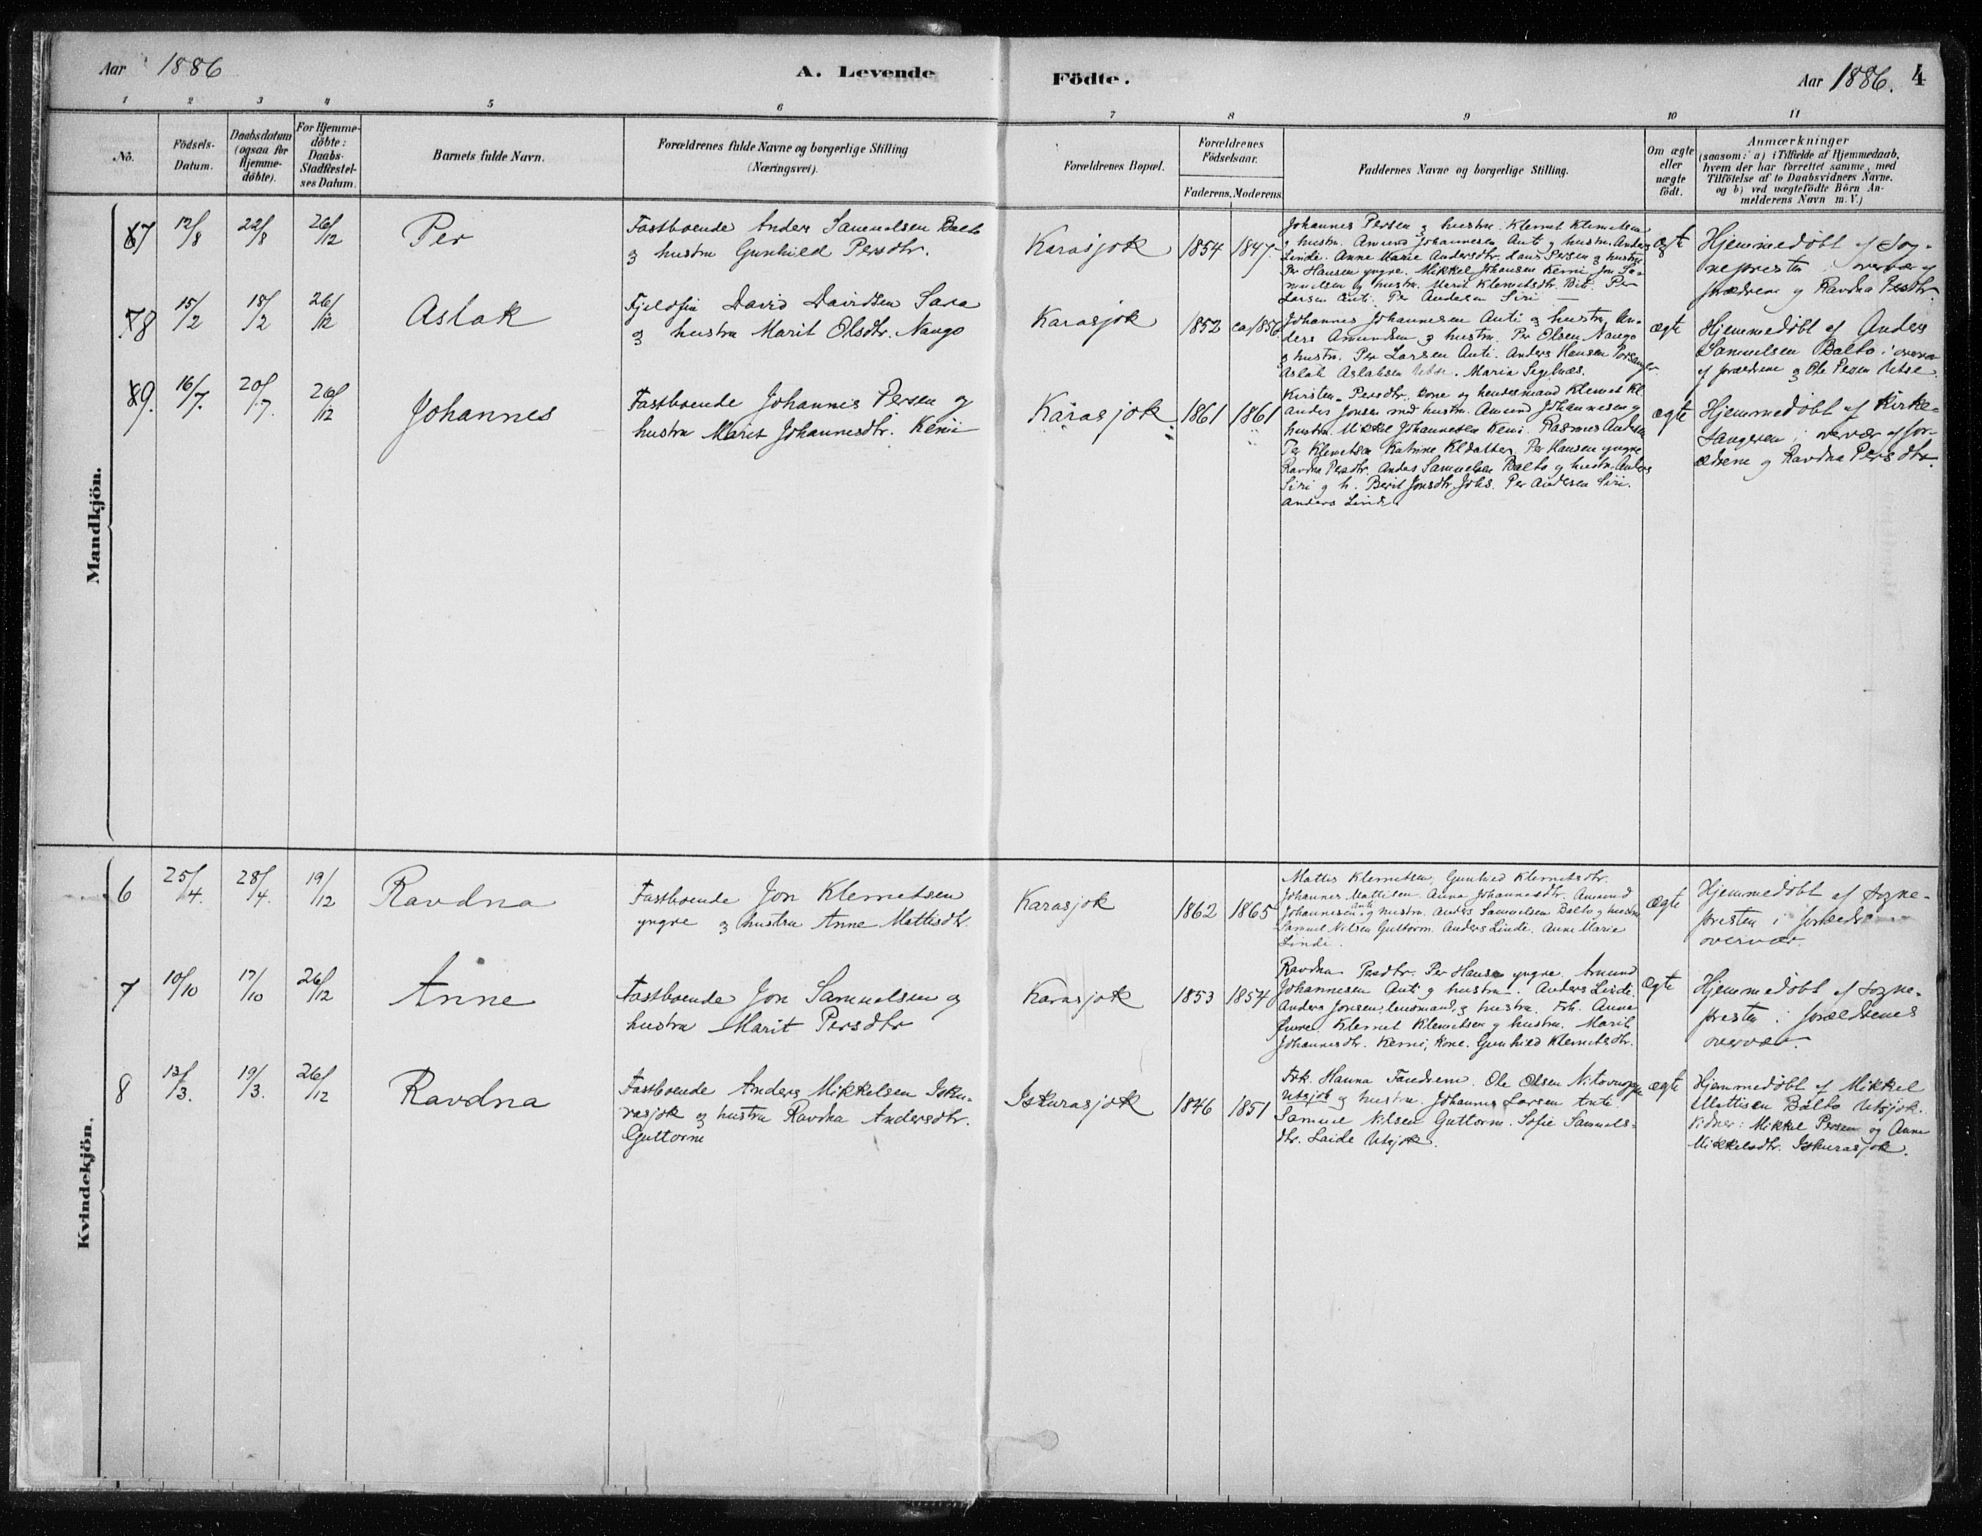 Aar 1886
A. Levende
Födte.
Aar 1886.
4
1 2 3 4 5 6 7 8 9 10 11
No.
Födsels-
Datum.
Daabsdatum
(ogsaa for
Hjemme-
døbte).
For Hjemme-
døbte:
Daabs-
Stadfæstel-
ses Datum.
Barnets fulde Navn.
Forældrenes fulde Navne og borgerlige Stilling
(Næringsvei).
Forældrenes Bopæl.
Forældrenes
Födselsaar.
Faderens. Moderens.
Faddernes Navne og borgerlige Stilling.
Om ægte
eller
uægte
födt.
Anmærkninger
(saasom: a) i Tilfælde af Hjemmedaab,
hvem der har forrettet samme, med
Tilföielse af to Daabsvidners Navne,
og b) ved uægtefödte Börn An-
melderens Navn m.V.)
Mandkjön.
7
12/8
22/8
26/12
Per
Fastboende Anders Samuelsen Balto
og hustru Gunhild Persdtr.
Karasjok
1854
1847.
Johannes Persen og hustru. Klemet Klemetsen
og hustru. Amund Johannesen Anti og hustru. Anders
Linde. Anne Marie Andersdtr. Lars Persen og hustru
Per Hansen yngre. Mikkel Johansen Kemi. Jon Sa-
muelsen og hustru. Marit Klemetsdtr. Per
Larsen Anti. Per Andersen Siri
ægte
Hjemmedøbt af Sog-
nepresten i overvær af
forældrene og Ravdna Persdtr.
8
15/2
18/2
26/12
Aslak
Fjeldfin David Davidsen Sara
og hustru Marit Olsdtr. Nango
Karasjok
1852
ca 1856
Johannes Johannesen Anti og hustru, An-
ders Amundsen og hustru. Per Olsen Nango
og hustru. Per Larsen Anti. Anders Hansen Porsanger.
Aslak Aslaksen Utse. Maria Segelnæs.
ægte
Hjemmedøbt af Anders
Samuelsen Balto i overvær
af forældrene og Ole Persen Utse.
9.
16/7.
20/7.
26/12
Johannes
Fastboende Johannes Persen og
hustru Marit Johannesdtr. Kemi
Karasjok
1861
1861
Kirsten Persdtr. kone og lensmand Klemet Kl.
Anders Jonsen med hustru. Amund Johannesen og
hustru. Mikkel Johannesen Kemi. Rasmus Andersen
Per Klemetsen Katrine Kl.datter, Per Hansen yngre
Ravdna Persdtr. Anders Samuelsen Balto og hustru. Anders
Siri og h. Berit Jonsdtr. Johs. Per Andersen Siri.
Anders Linde.
ægte
Hjemmedøbt af Kirke-
sangeren i overvær af for-
ældrene og Ravdna Persdtr.
Kvindekjön.
6
25/4.
28/4.
19/12
Ravdna
Fastboende Jon Klemetsen
yngre og hustru Anne Mattisdtr.
Karasjok
1862
1865
Mattis Klemetsen, Gunhild Klemetsdtr.
Johannes Mattisen. Anna Johannesdtr. Amund
Johannesen Anti og hustru. Anders Samuelsen Balto og hustru
Samuel Nilsen Guttorm. Anders Linde. Anne Marie
Linde.
ægte
Hjemmedøbt af Sogne-
presten i forældres
overvær.
7
10/10
17/10
26/12
Anne
Fastboende Jon Samuelsen og
hustru Marit Persdtr
Karasjok
1853
1854
Ravdna Persdtr. Per Hansen yngre. Amund
Johannesen Anti og hustru. Anders Linde.
Anders Jonsen, lensmand, og hustru. Frk. Anna
Klemet Klemetsen og hustru. Marit
Johannesdtr. Kemi, kone. Gunhild Klemetsdtr.
ægte
Hjemmedøbt af Sogne-
presten i forældrenes
overvær.
8
13/3.
19/3.
26/12
Ravdna
Fastboende Anders Mikkelsen Isku-
rasjok og hustru Ravdna Andersdtr.
Guttorm
Iskurasjok
1846
1851
Frk. Hanna Tandrem. Ole Olsen Nitovuoppe
Utsjok og hustru. Johannes Larsen Anti.
Samuel Nilsen Guttorm. Sofie Samuels-
dtr. Laide Utsjok.
ægte
Hjemmedøbt af Mikkel
Mattisen Balto Utsjok.
Vidner: Mikkel Persen og Anne
Mikkelsdtr. Iskurasjok.